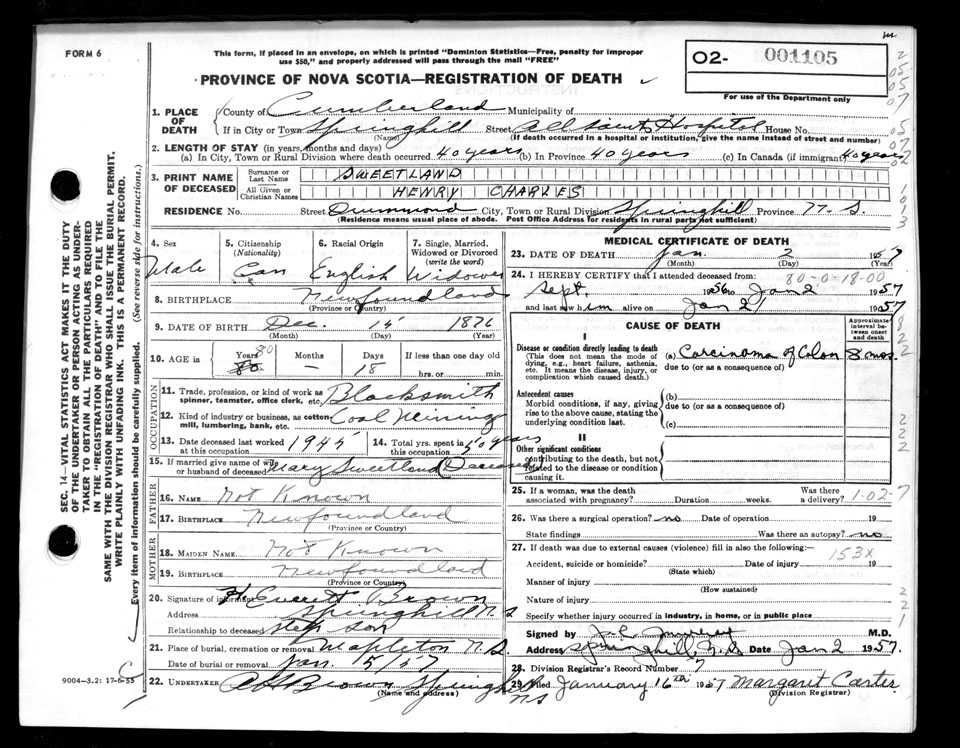 FORM 6
This form, if placed in an envelope, on which is printed "Dominion Statistics—Free, penalty for improper
use $50," and properly addressed will pass through the mail "FREE"
PROVINCE OF NOVA SCOTIA—REGISTRATION OF DEATH
02- 001105
For use of the Department only
1. PLACE OF DEATH
County of Cumberland Municipality of
If in City or Town Springhill Street All Saints Hospital House No.
(Name) (If death occurred in a hospital or institution, give the name instead of street and number)
2. LENGTH OF STAY (in years, months and days)
(a) In City, Town or Rural Division where death occurred 40 years (b) In Province 40 years (c) In Canada (if immigrant) 40 years
3. PRINT NAME OF DECEASED
Surname or Last Name SWEETLAND
All Given or Christian Names HENRY CHARLES
RESIDENCE No. Street Drummond City, Town or Rural Division Springhill Province N. S.
(Residence means usual place of abode. Post Office Address for residents in rural parts not sufficient)
4. Sex Male
5. Citizenship (Nationality) Can
6. Racial Origin English
7. Single, Married, Widowed or Divorced (write the word) Widower
8. BIRTHPLACE Newfoundland
(Province or Country)
9. DATE OF BIRTH Dec. 15 1876
(Month) (Day) (Year)
10. AGE in Years 80 Months — Days 18 If less than one day old
hrs. or min.
OCCUPATION
11. Trade, profession, or kind of work as spinner, teamster, office clerk, etc. Blacksmith
12. Kind of industry or business, as cotton mill, lumbering, bank, etc. Coal Mining
13. Date deceased last worked at this occupation 1945
14. Total yrs. spent in this occupation 50 years
15. If married give name of wife or husband of deceased Mary Sweetland (Deceased)
FATHER
16. NAME Not Known
17. BIRTHPLACE Newfoundland
(Province or Country)
MOTHER
18. MAIDEN NAME Not Known
19. BIRTHPLACE Newfoundland
(Province or Country)
20. Signature of informant H. Everett Brown
Address Springhill N. S
Relationship to deceased step son
21. Place of burial, cremation or removal Mapleton N. S.
Date of burial or removal Jan. 5/57
22. UNDERTAKER Brown Springhill NS
(Name and address)
MEDICAL CERTIFICATE OF DEATH
23. DATE OF DEATH Jan. 2 1957
(Month) (Day) (Year)
80-0-18-00
24. I HEREBY CERTIFY that I attended deceased from:
Sept. 1956 to Jan 2 1957
and last saw him alive on Jan 2 1957
CAUSE OF DEATH
Approximate interval between onset and death
I
Disease or condition directly leading to death
(This does not mean the mode of dying, e.g., heart failure, asthenia, etc. It means the disease, injury, or complication which caused death.)
(a) Carcinoma of Colon 8 mos.
due to (or as a consequence of)
Antecedent causes
Morbid conditions, if any, giving rise to the above cause, stating the underlying condition last.
(b)
due to (or as a consequence of)
(c)
II
Other significant conditions
contributing to the death, but not related to the disease or condition causing it.
25. If a woman, was the death associated with pregnancy? Duration weeks. Was there a delivery?
1-02-7
26. Was there a surgical operation? no Date of operation 19
State findings Was there an autopsy? no
27. If death was due to external causes (violence) fill in also the following:—
153X
Accident, suicide or homicide? Date of injury 19
(State which)
Manner of injury
(How sustained)
Nature of injury
Specify whether injury occurred in industry, in home, or in public place
Signed by M.D.
Address Springhill, N.S. Date Jan 2 1957
28. Division Registrar's Record Number 7
29. Filed January 16th 1957 Margaret Carter
(Division Registrar)
9004—3.2: 17-6-55
SEC. 14—VITAL STATISTICS ACT MAKES IT THE DUTY
OF THE UNDERTAKER OR PERSON ACTING AS UNDERTAKER TO OBTAIN ALL THE PARTICULARS REQUIRED
IN THE "REGISTRATION OF DEATH" AND TO FILE THE
SAME WITH THE DIVISION REGISTRAR WHO SHALL ISSUE THE BURIAL PERMIT.
WRITE PLAINLY WITH UNFADING INK. THIS IS A PERMANENT RECORD.
Every item of information should be carefully supplied. (See reverse side for instructions.)